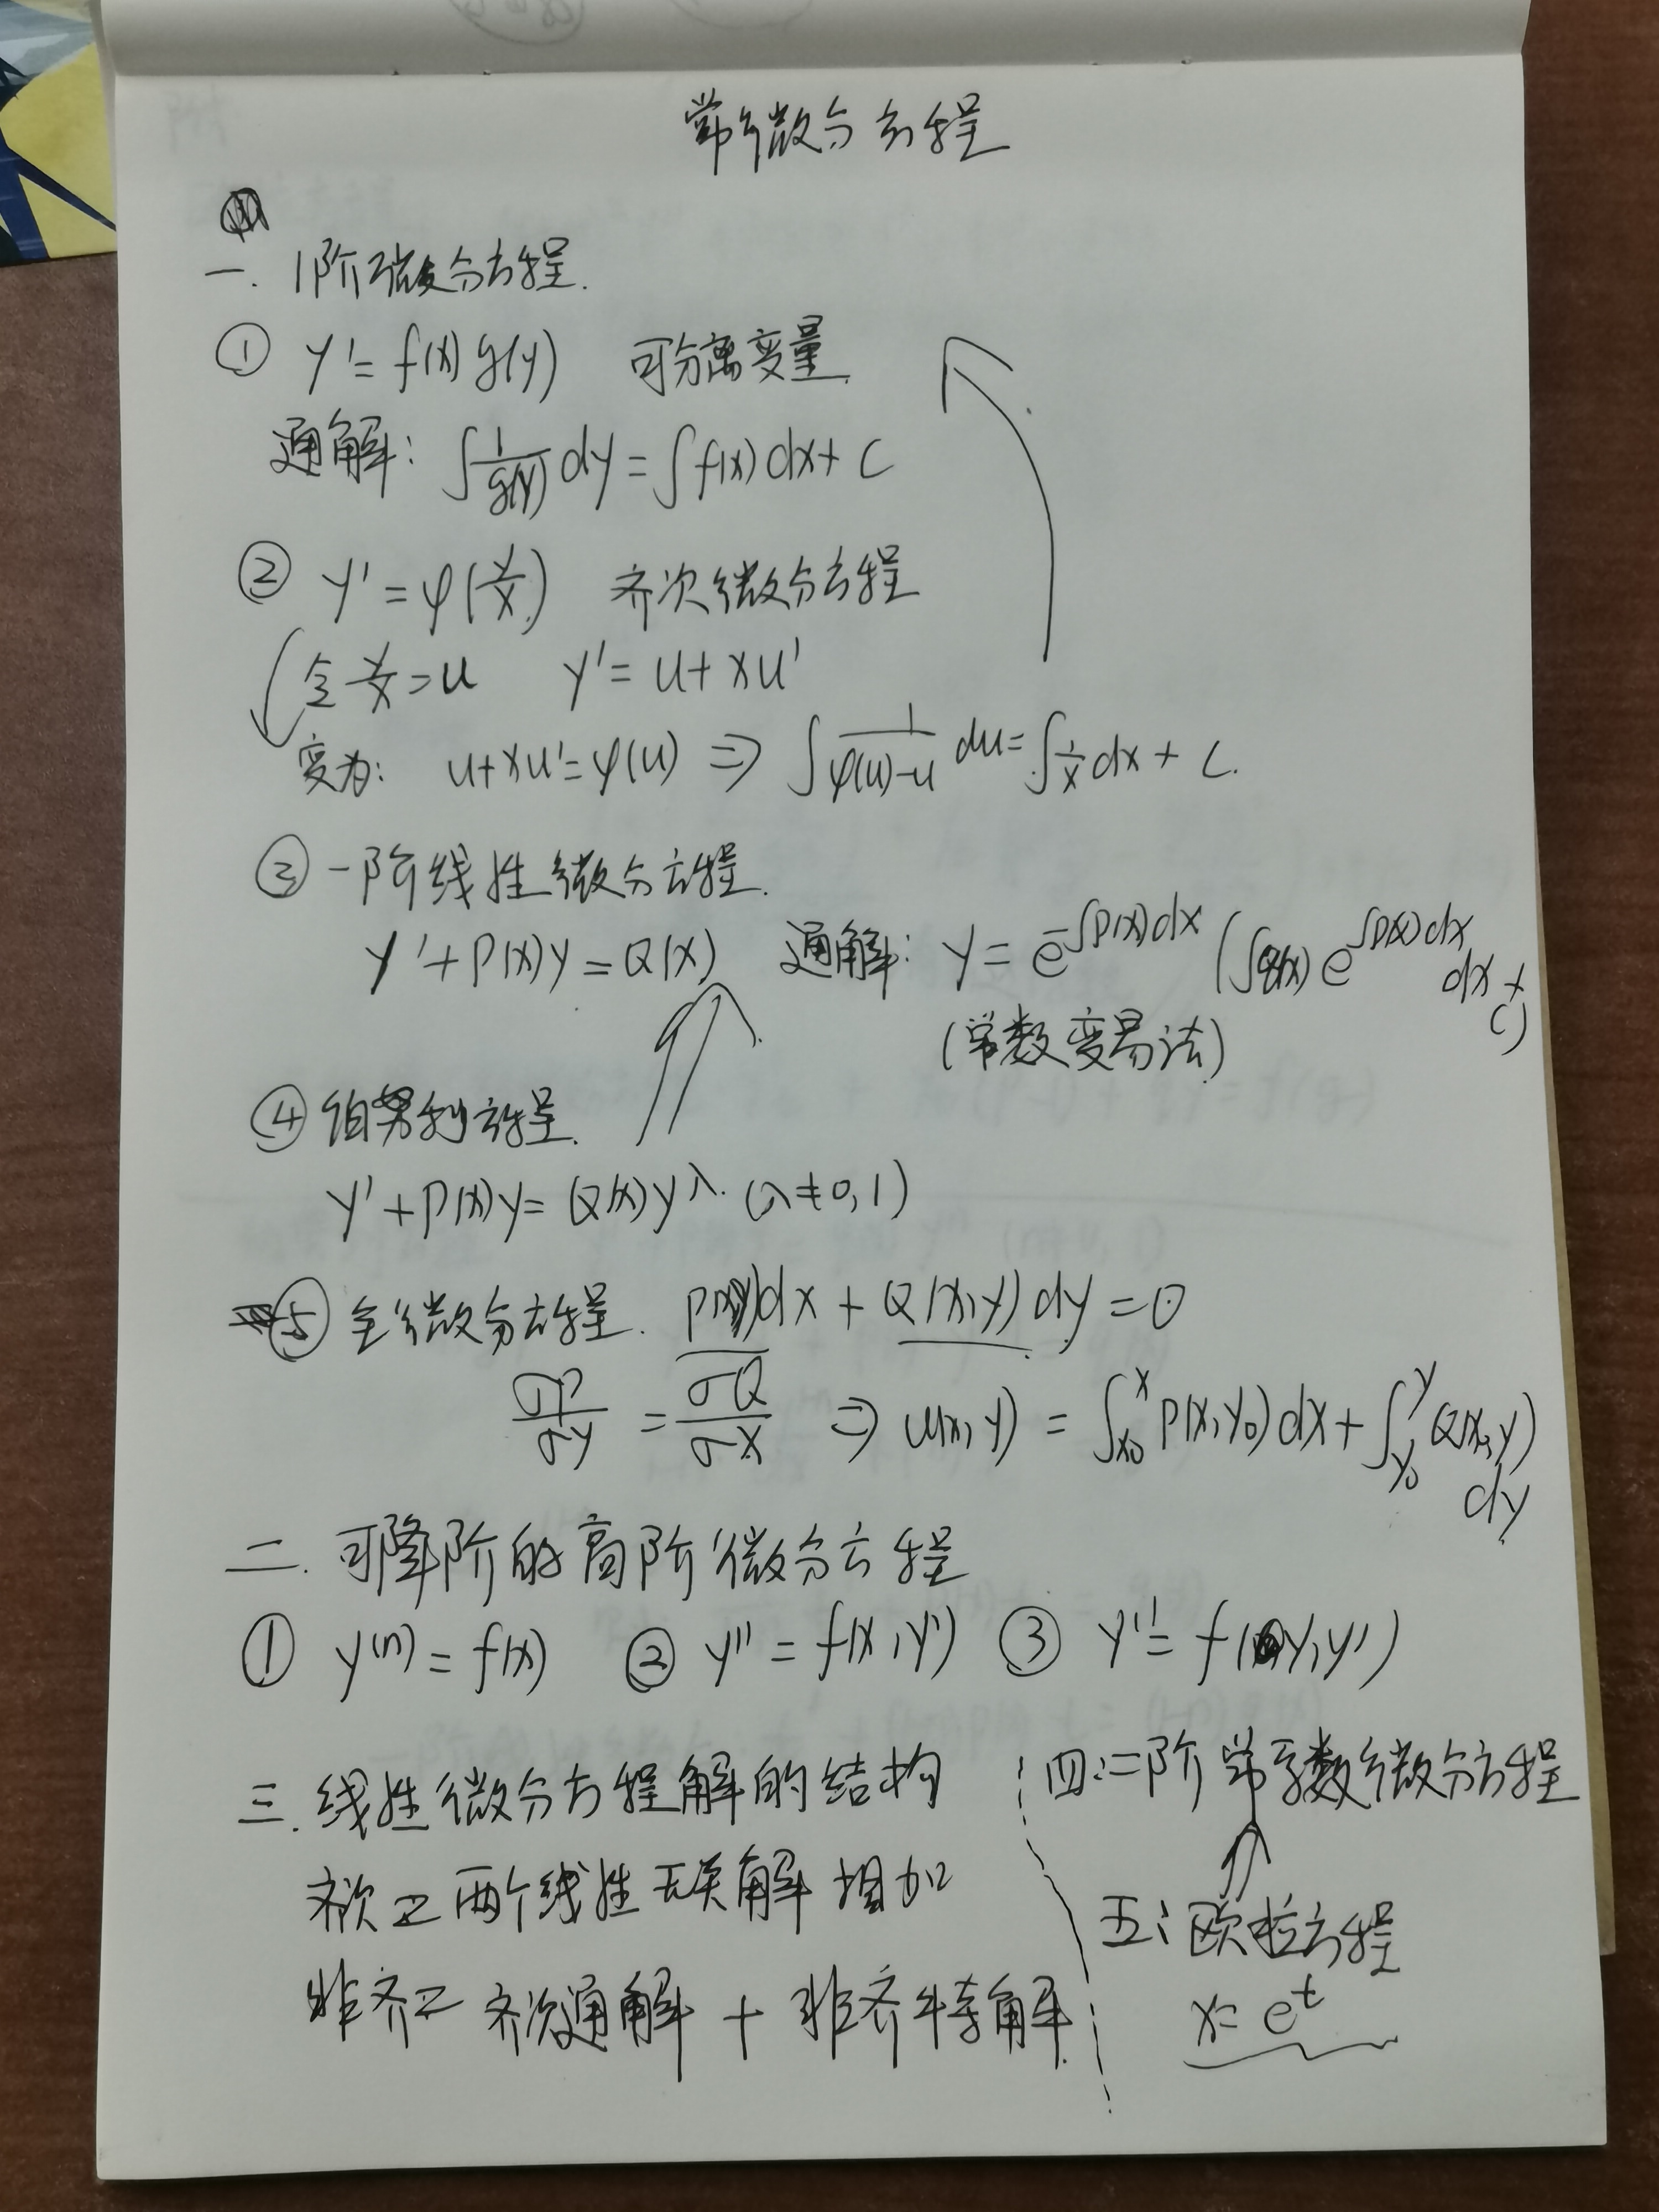 常微分方程
一. 1阶微分方程.
① y' = f(x) g(y) 可分离变量.
通解: ∫ 1/g(y) dy = ∫ f(x) dx + C
② y' = φ(y/x) 齐次微分方程
令 y/x = u y' = u + xu'
变为: u + xu' = φ(u) ⇒ ∫ 1/(φ(u)-u) du = ∫ 1/x dx + C.
③ 一阶线性微分方程.
y' + P(x)y = Q(x) 通解: y = e^{-∫P(x)dx} (∫Q(x) e^{∫P(x)dx} dx + C)
(常数变易法)
④ 伯努利方程.
y' + P(x)y = Q(x) y^λ. (λ ≠ 0, 1)
⑤ 全微分方程. P(x,y)dx + Q(x,y) dy = 0
∂P/∂y = ∂Q/∂x ⇒ u(x,y) = ∫_{x₀}^{x} P(x,y₀) dx + ∫_{y₀}^{y} Q(x,y) dy
二. 可降阶的高阶微分方程
① y^(n) = f(x) ② y'' = f(x, y') ③ y'' = f(y, y')
三. 线性微分方程解的结构
齐次 = 两个线性无关解相加
非齐 = 齐次通解 + 非齐特解.
四: 二阶常系数微分方程
五: 欧拉方程
x = e^t